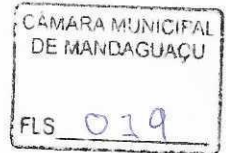 CÂMARA MUNICIPAL
DE MANDAGUAÇU
FLS 019